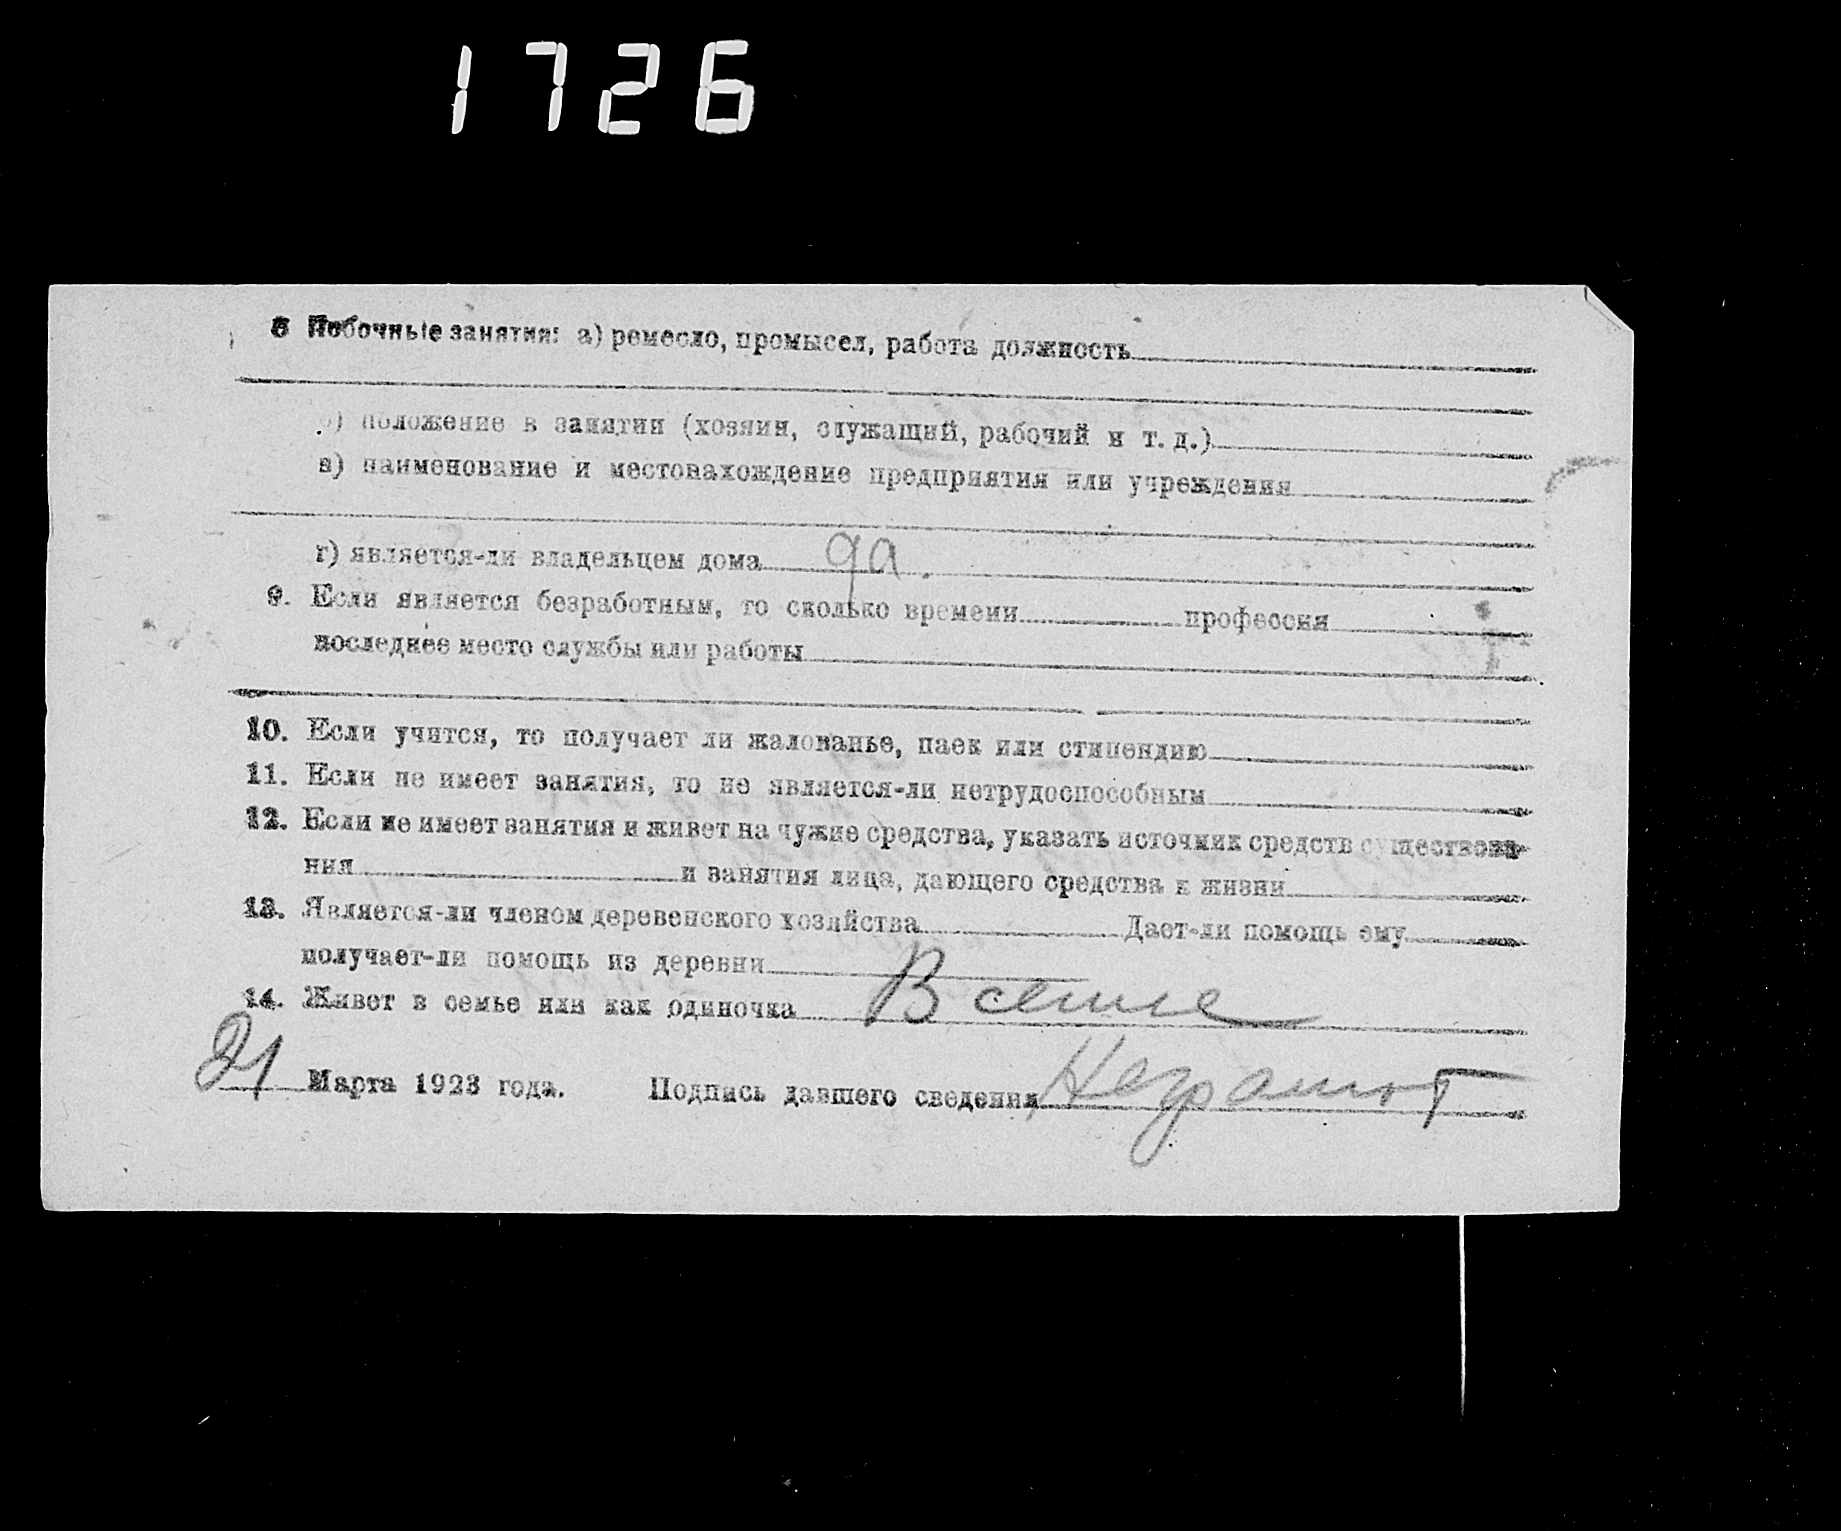 1726
8 Побочные занятия: а) ремесло, промысел, работа должность
б) положение в занятии (хозяин, служащий, рабочий и т. д.)
в) наименование и местонахождение предприятия или учреждения
г) является-ли владельцем дома да.
9. Если является безработным, то сколько времени профессия
последнее место службы или работы
10. Если учится, то получает ли жалованье, паек или стипендию
11. Если не имеет занятия, то не является-ли нетрудоспособным
12. Если не имеет занятия и живет на чужие средства, указать источник средств существова-
ния и занятия лица, дающего средства к жизни
13. Является-ли членом деревенского хозяйства Дает-ли помощь ему
получает-ли помощь из деревни
14. Живет в семье или как одиночка В семье
21 Марта 1923 года. Подпись давшего сведения Неграмот